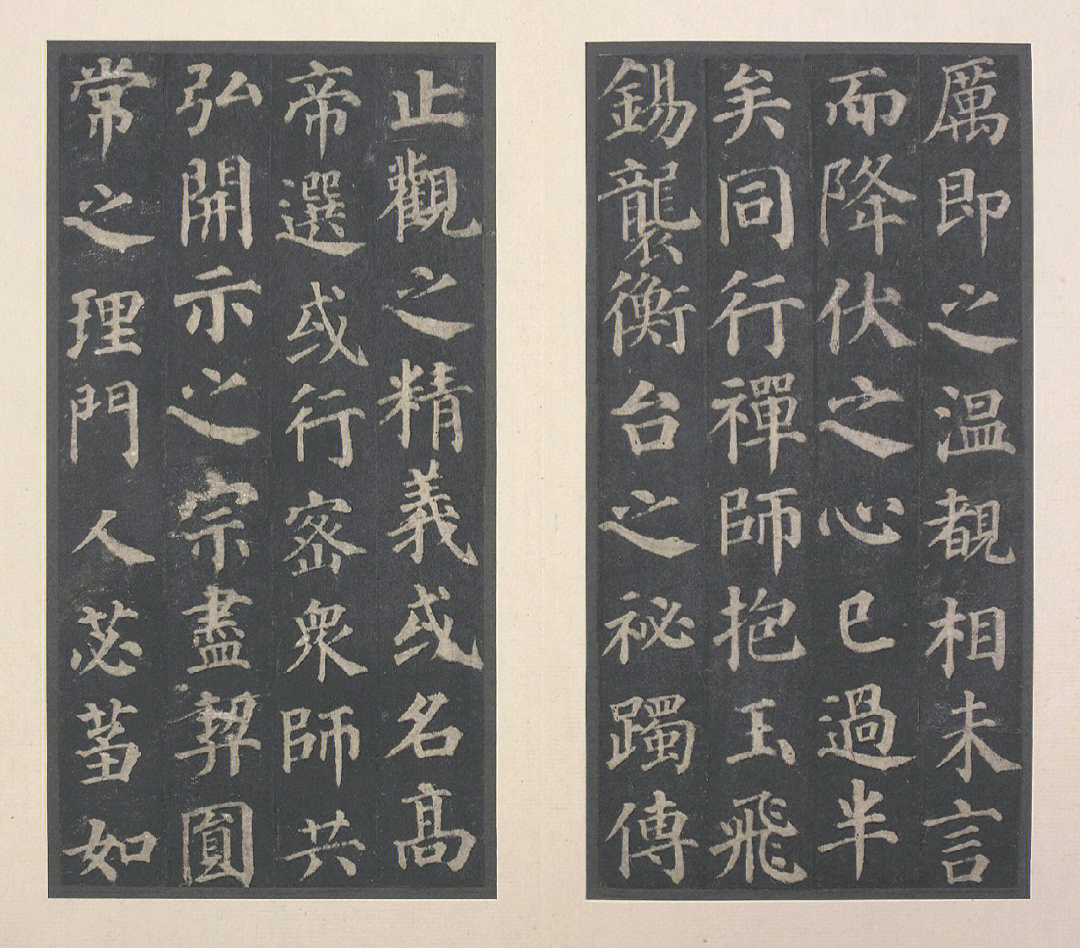 厲即之温覩相未言
而降伏之心已過半
矣同行禪師抱玉飛
錫襲衡台之祕躅傳
止觀之精義或名高
帝選或行密衆師共
弘開示之宗盡契圓
常之理門人苾蒭如